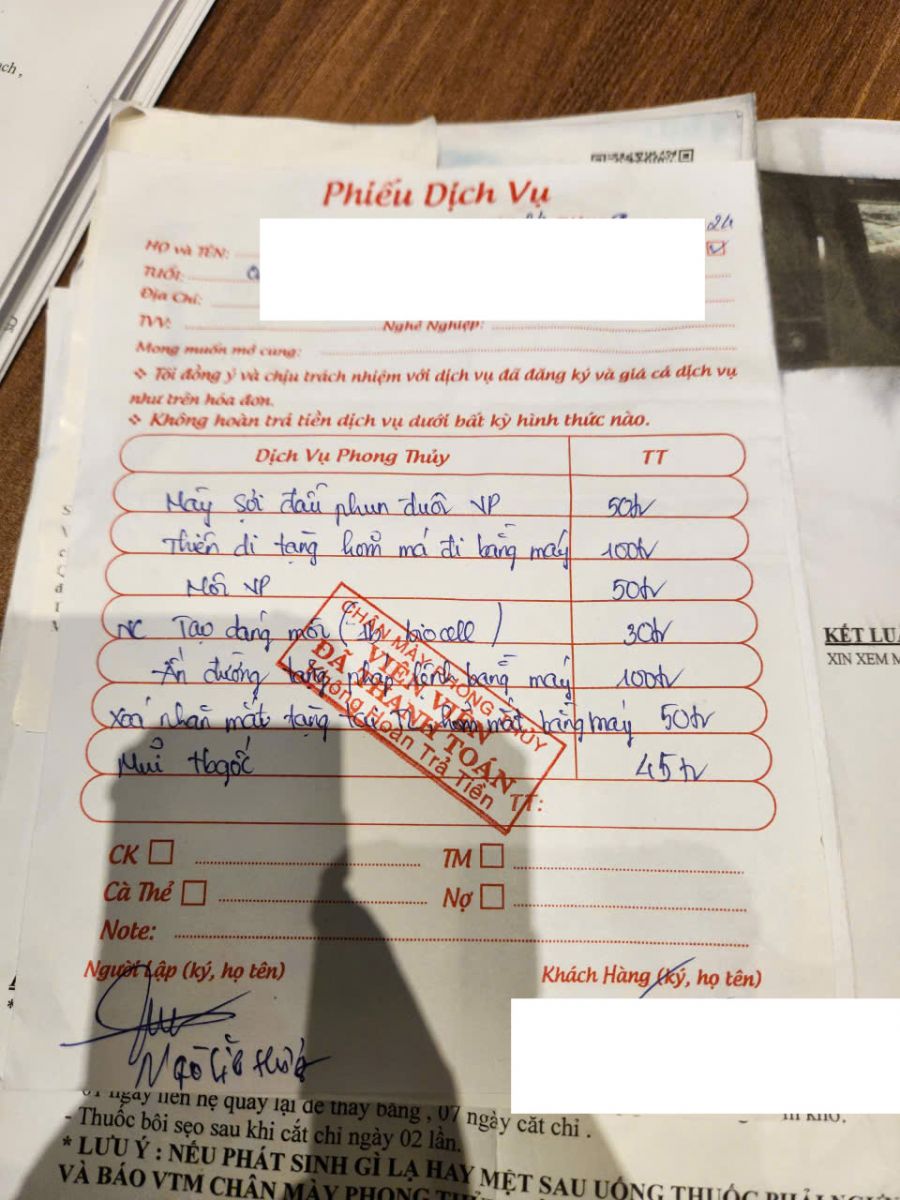 ch,
Phiếu Dịch Vụ
24
HỌ và TÊN:
TUỔI:
Địa Chỉ:
TVV: Nghề Nghiệp:
Mong muốn mở cung:
❖ Tôi đồng ý và chịu trách nhiệm với dịch vụ đã đăng ký và giá cả dịch vụ
như trên hóa đơn.
❖ Không hoàn trả tiền dịch vụ dưới bất kỳ hình thức nào.
Dịch Vụ Phong Thủy TT
Mày sợi đầu phun đuôi VP 50tr
Thiên di tạng hỏm má đi bằng máy 100tr
Môi VP 50tr
NC Tạo dáng môi ( biocell ) 30tr
Ấn đường tạng pháp lệnh bằng máy 100tr
Xoá nhăn mắt tạng hỏm mắt bằng máy 50tr
Mũi 45tr
CHÂN MÀY PHONG THỦY
VIÊN VIÊN
ĐÃ THANH TOÁN
Không Hoàn Trả Tiền
TT:
CK TM
Cà Thẻ Nợ
Note:
Người Lập (ký, họ tên) Khách Hàng (ký, họ tên)
KẾT LU
XIN XEM M
ngày liên hệ quay lại để thay băng , 07 ngày cắt chỉ .
- Thuốc bôi sẹo sau khi cắt chỉ ngày 02 lần.
* LƯU Ý : NẾU PHÁT SINH GÌ LẠ HAY MỆT SAU UỐNG THUỐC PHẢI
VÀ BÁO VTM CHÂN MÀY PHONG